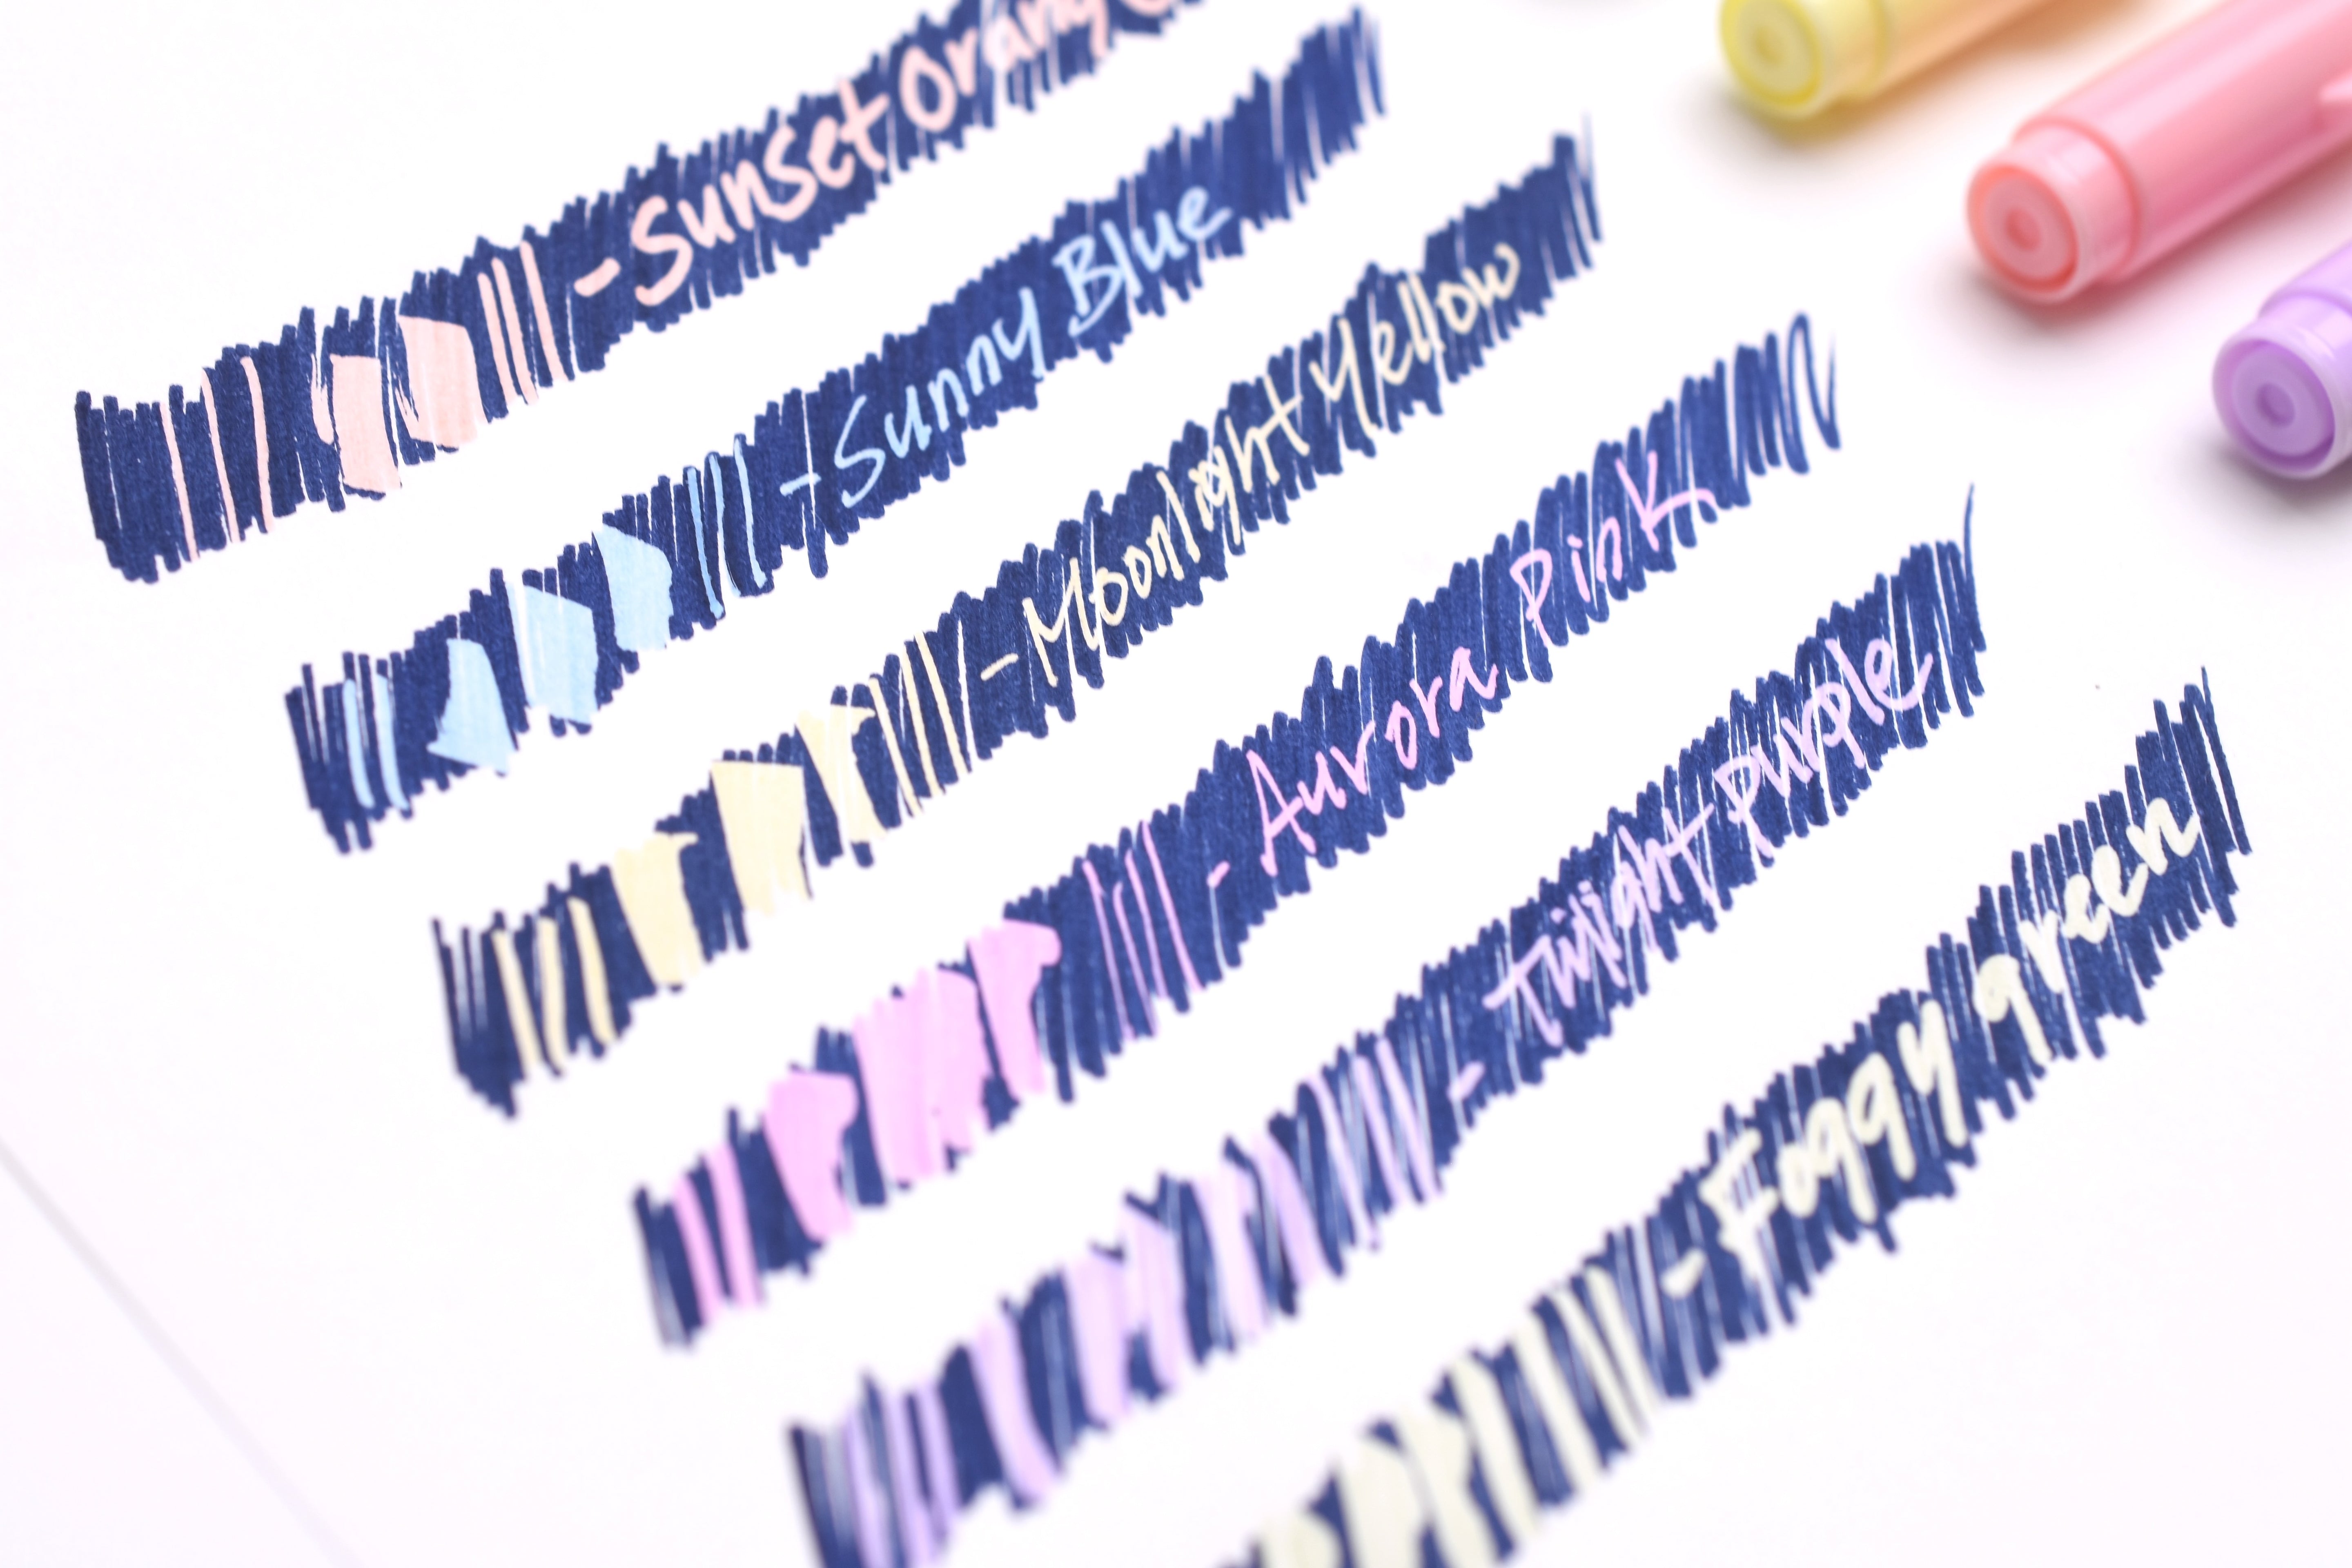 - Sunset Orang
- Sunny Blue
- Moonlight Yellow
- Aurora Pink
- Twilight Purple
- Foggy green